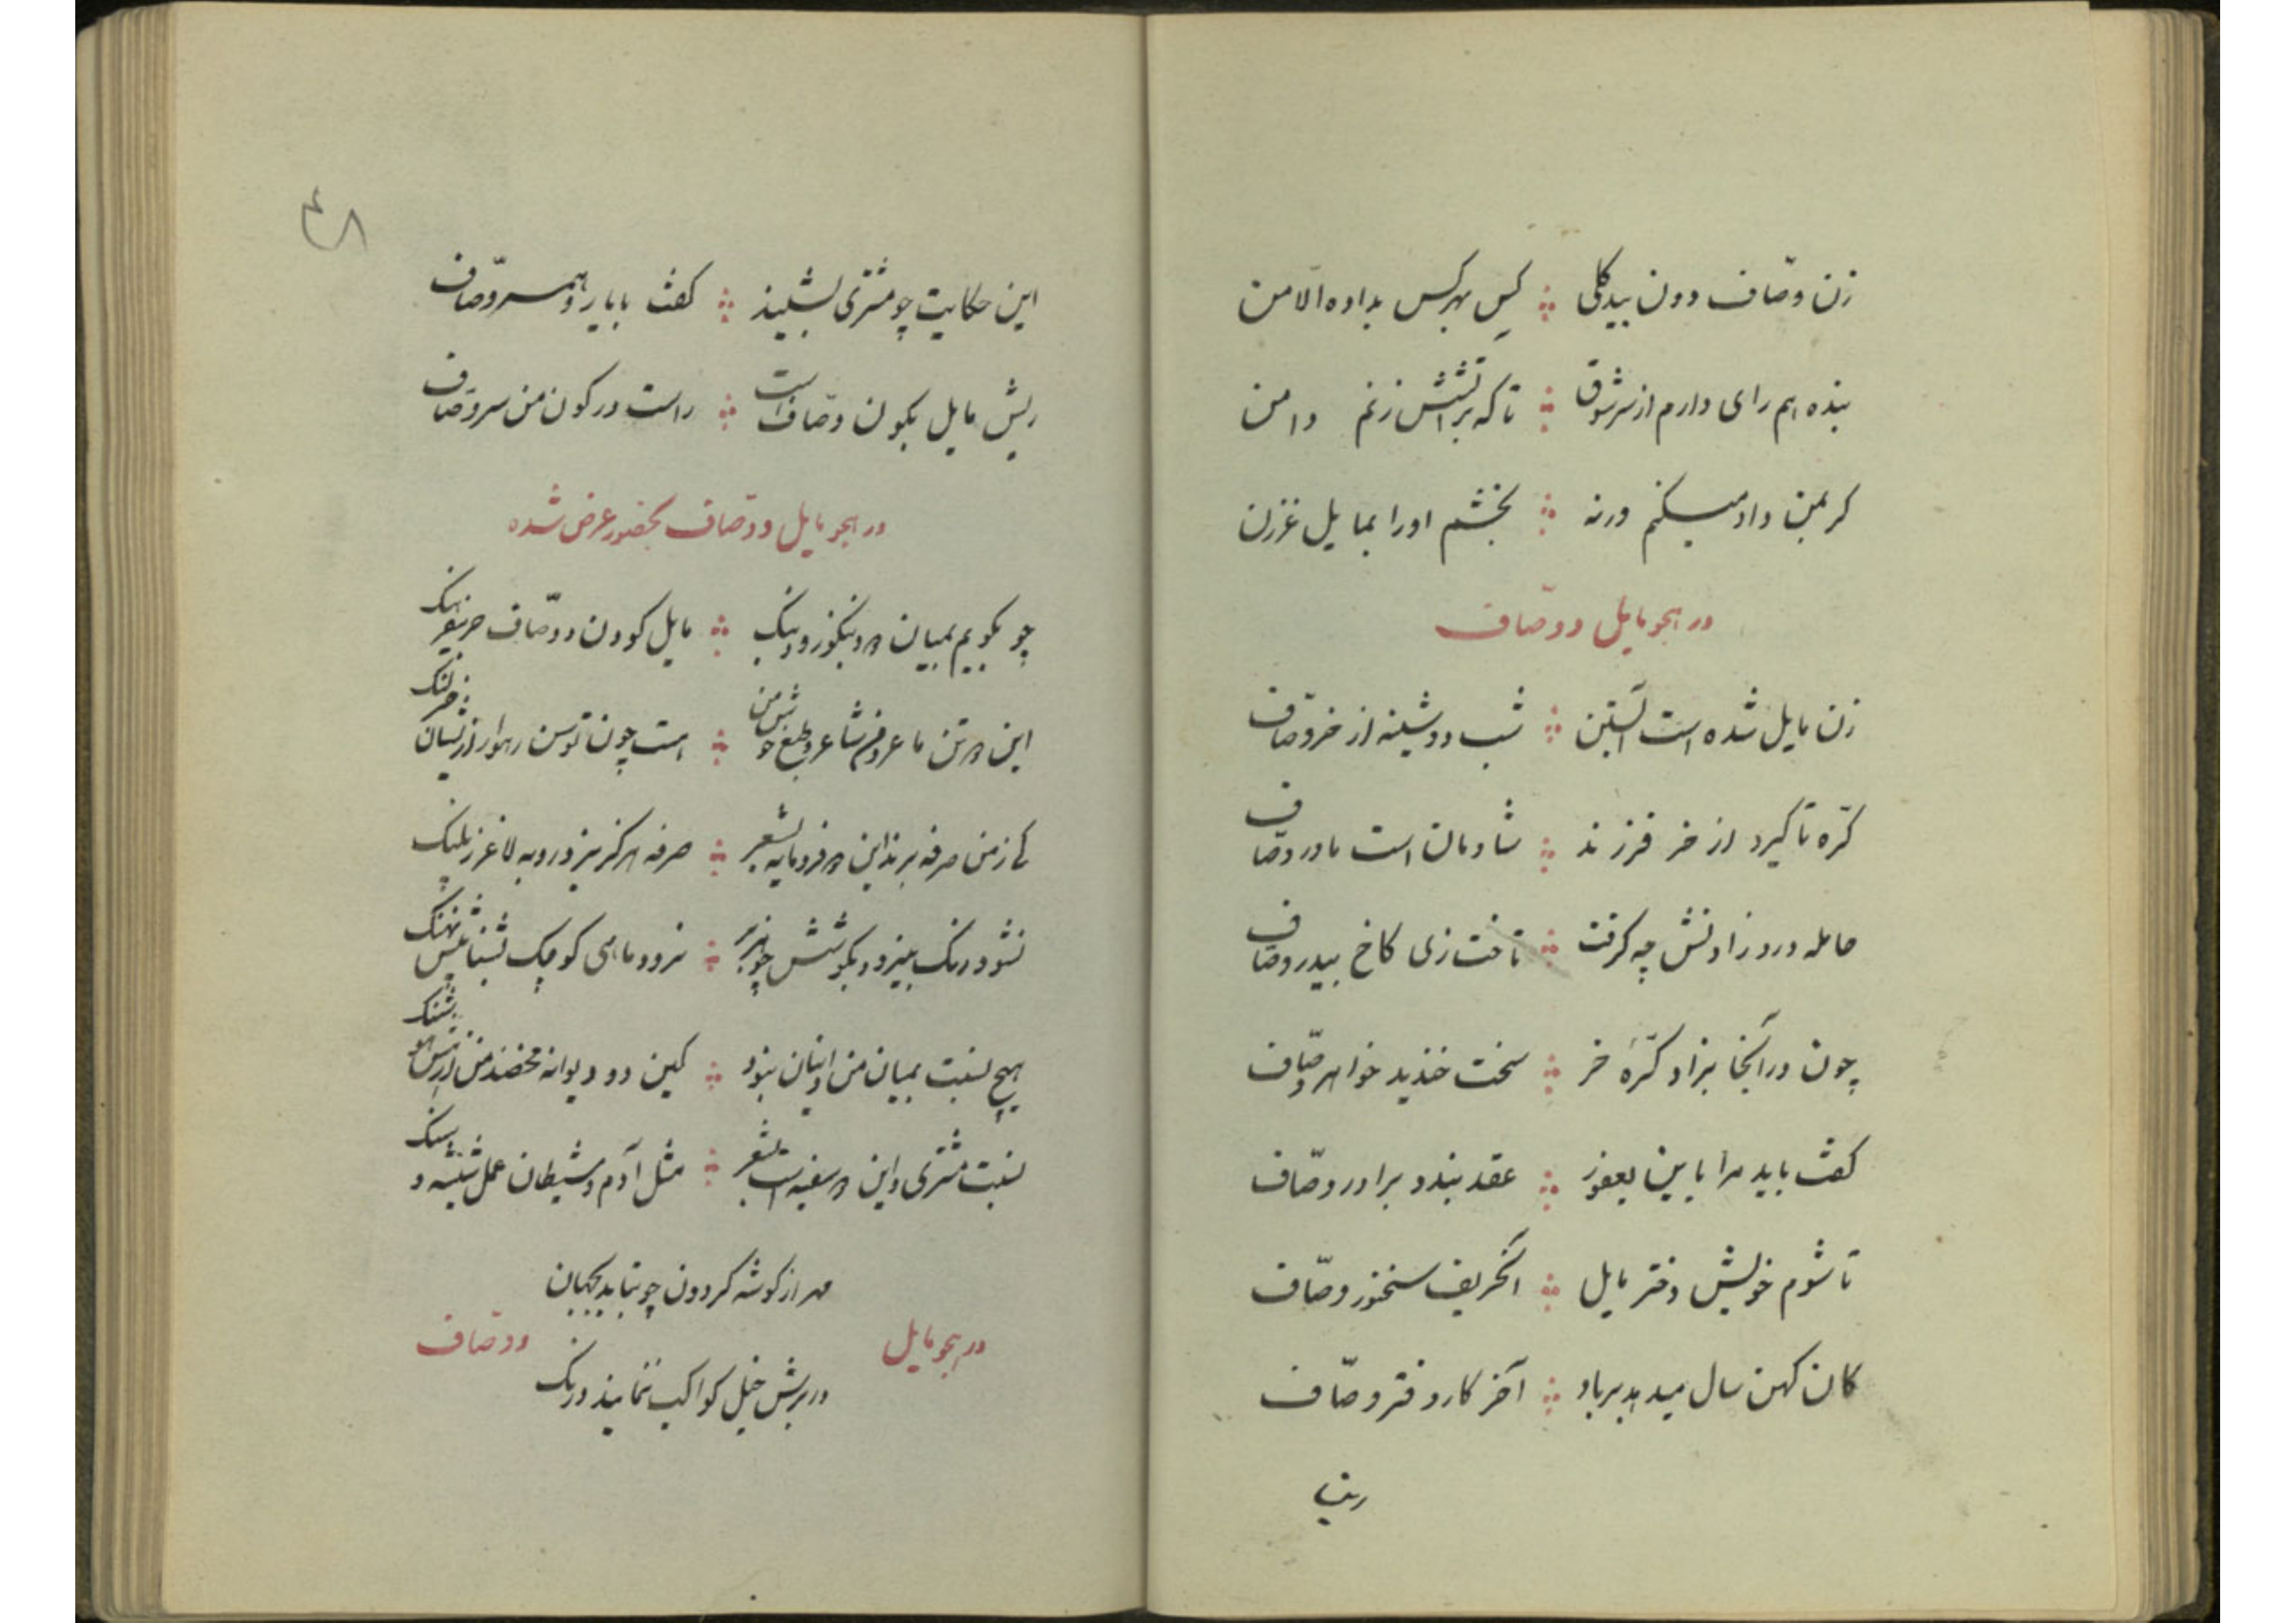 زن وصّاف دون بیدگلی ؞ کس بهر کس بداده الّا من
بنده هم رای دارم از سر شوق ؞ تا که بر آتشش زنم دامن
کر بمن داد میکنم ورنه ؞ بخشم اورا بمایل غرزن
در هجو مایل و وصّاف
زن مایل شده است آبستن ؞ شب دوشینه از خر وصّاف
کرّه تا کیرد از خر فرزند ؞ شادمان است مادر وصّاف
حامله درد زادنش چه کرفت ؞ تاخت زی کاخ بیدر وصّاف
چون در آنجا بزاد کرّهٔ خر ؞ سخت خندید خواهر وصّاف
کفت باید مرا باین یعفور ؞ عقد بندد برادر وصّاف
تا شوم خویش دختر مایل ؞ انحریف سخنور وصّاف
کان کهن سال میدهد برباد ؞ آخر کار دفتر وصّاف
ریش
۴۸
این حکایت چو مشتری بشنید ؞ کفت با یار و همسر وصّاف
ریش مایل بکون وصّاف است ؞ راست در کون من سر وصّاف
در هجو مایل و وصّاف بحضور عرض شده
چو بکویم بمیان دو نکوز و دبنک ؞ مایل کودن و وصّاف خر
این دو تن ما عر و من شاعر و طبع خوش من ؞ هست چون توسن رهوار از ایشان خر لنک
کی ز من صرفه برند این دو فرومایه بشعر ؞ صرفه هرکز نبرد روبه لاغر ز پلنک
نشود رنک بنیرو و بکوشش چو هژبر ؞ نرود ماهی کوچک بشنا پیش نهنک
هیچ نسبت بمیان من و اینان نبود ؞ کین دو دیوانه محضند من
نسبت مشتری و این دو سفیه است بشعر ؞ مثل آدم و شیطان عمل شیشه و سنک
مهر از کوشه کردون چو بتابد بجهان
در برش خیل کواکب ننمایند درنک
در هجو مایل و وصّاف